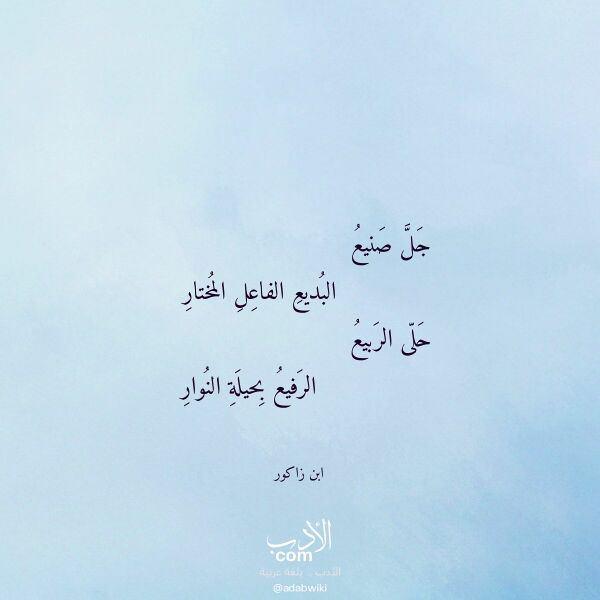 جَلَّ صَنيعُ
البُديعِ الفاعِلِ المُختارِ
حَلّى الرَبيعُ
الرَفيعُ بِحيلَةِ النُوارِ
ابن زاكور
الأدب
com
الأدب .. بلغة عربية
@adabwiki